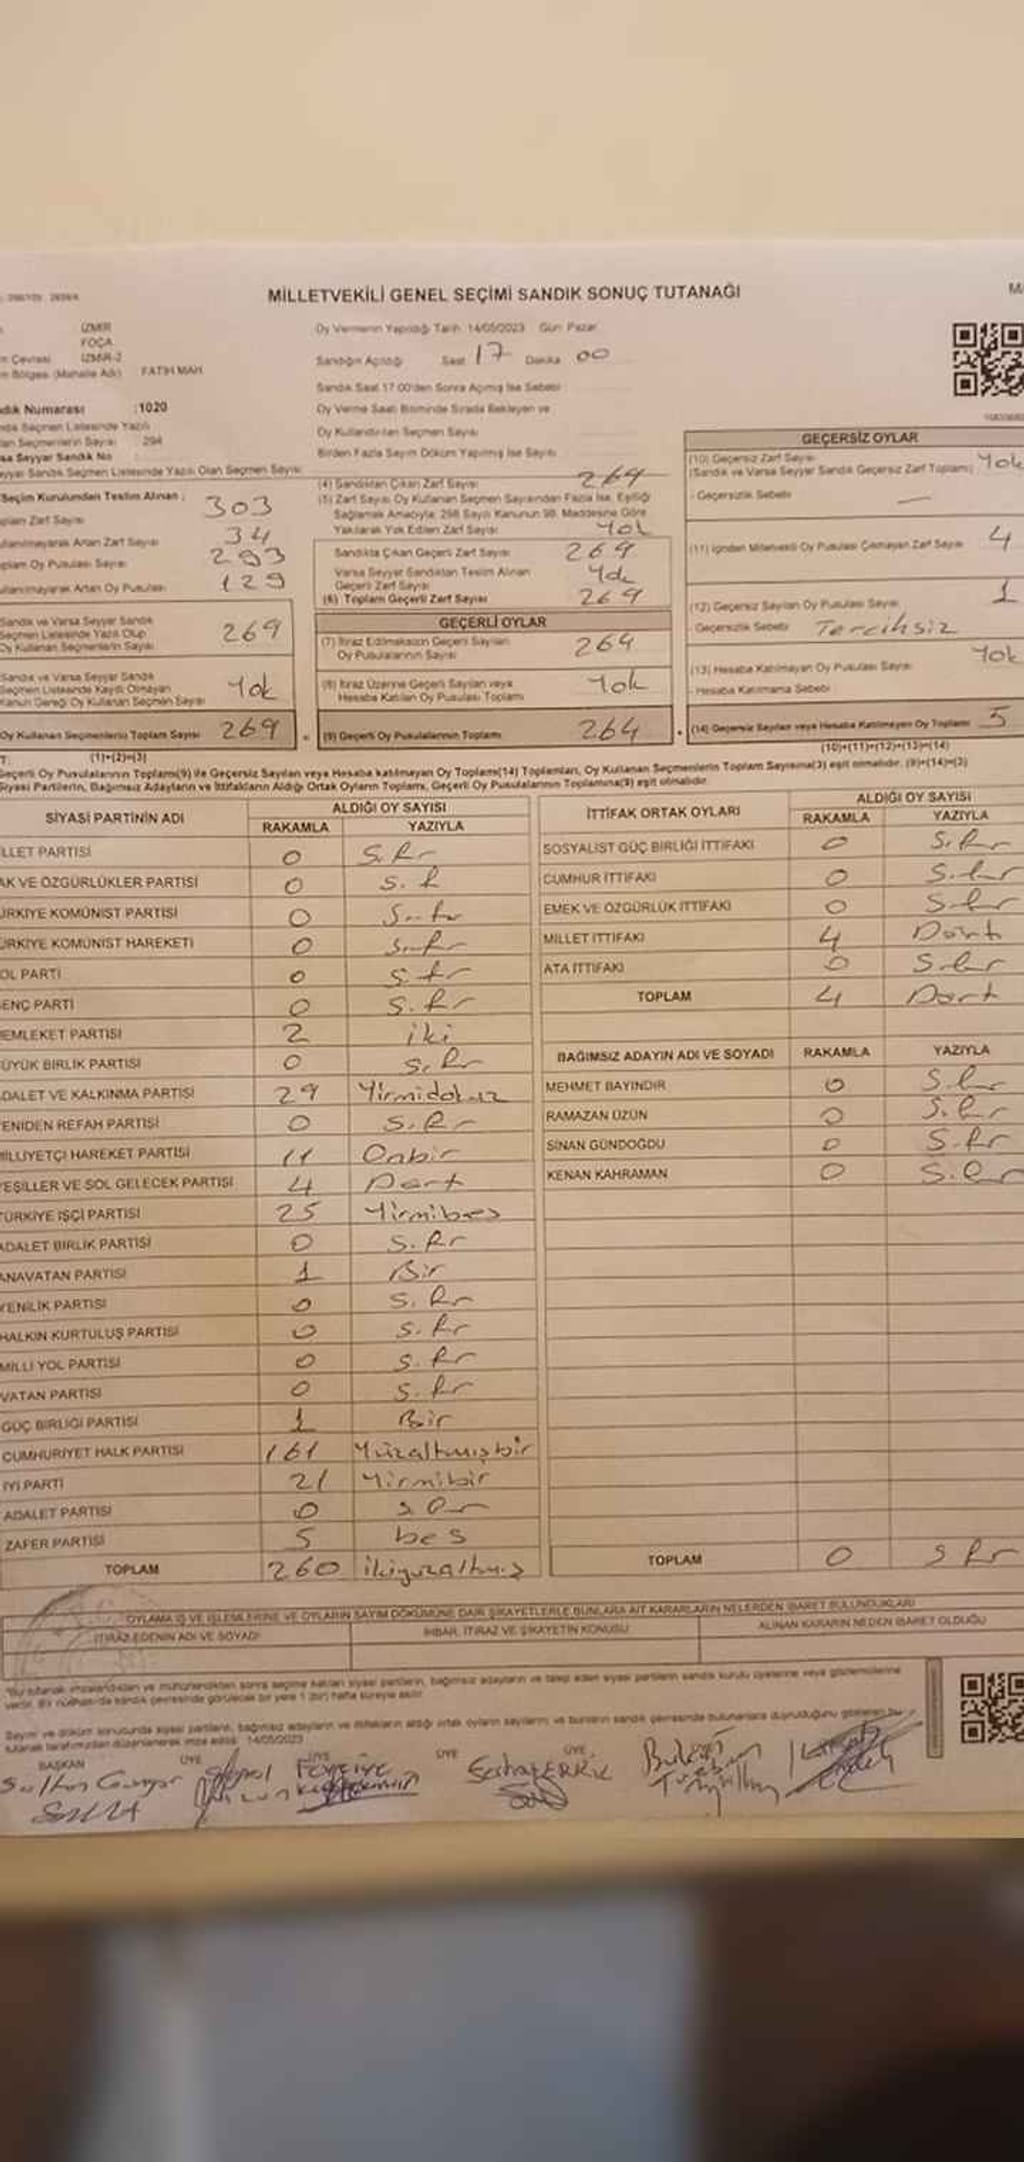 MİLLETVEKİLİ GENEL SEÇİMİ SANDIK SONUÇ TUTANAĞI
İZMİR
FOÇA
İZMİR-2
FATİH MAH
Numarası :1020
294
Oy Vermenin Yapıldığı Tarih 14/05/2023 Gün Pazar
Sandığın Açıldığı Saat 17 Dakika 00
Sandık Saat 17:00'den Sonra Açılmış İse Sebebi
Oy Verme Saati Bitiminde Sırada Bekleyen ve
Oy Kullandırılan Seçmen Sayısı
Birden Fazla Sayım Döküm Yapılmış İse Sayısı
Seçim Kurulundan Teslim Alınan :
Zarf Sayısı 303
Artan Zarf Sayısı 34
Oy Pusulası Sayısı 293
Artan Oy Pusulası 129
Sandık ve Varsa Seyyar Sandık
Seçmen Listesinde Yazılı Olup
Oy Kullanan Seçmenlerin Sayısı 269
Sandık ve Varsa Seyyar Sandık
Seçmen Listesinde Kayıtlı Olmayan
Kanun Gereği Oy Kullanan Seçmen Sayısı Yok
Oy Kullanan Seçmenlerin Toplam Sayısı 269
(1)+(2)=(3)
(4) Sandıktan Çıkan Zarf Sayısı 269
(5) Zarf Sayısı Oy Kullanan Seçmen Sayısından Fazla İse, Eşitliği
Sağlamak Amacıyla; 298 Sayılı Kanunun 98. Maddesine Göre
Yakılarak Yok Edilen Zarf Sayısı Yok
Sandıkta Çıkan Geçerli Zarf Sayısı 269
Varsa Seyyar Sandıktan Teslim Alınan
Geçerli Zarf Sayısı Yok
(6) Toplam Geçerli Zarf Sayısı 269
GEÇERLİ OYLAR
(7) İtiraz Edilmeksizin Geçerli Sayılan
Oy Pusulalarının Sayısı 264
(8) İtiraz Üzerine Geçerli Sayılan veya
Hesaba Katılan Oy Pusulası Toplamı Yok
(9) Geçerli Oy Pusulalarının Toplamı 264
GEÇERSİZ OYLAR
(10) Geçersiz Zarf Sayısı
(Sandık ve Varsa Seyyar Sandık Geçersiz Zarf Toplamı) Yok
- Geçersizlik Sebebi —
(11) İçinden Milletvekili Oy Pusulası Çıkmayan Zarf Sayısı 4
(12) Geçersiz Sayılan Oy Pusulası Sayısı 1
Geçersizlik Sebebi Tercihsiz
(13) Hesaba Katılmayan Oy Pusulası Sayısı Yok
- Hesaba Katılmama Sebebi
(14) Geçersiz Sayılan veya Hesaba Katılmayan Oy Toplamı 5
(10)+(11)+(12)+(13)=(14)
Geçerli Oy Pusulalarının Toplamı(9) ile Geçersiz Sayılan veya Hesaba katılmayan Oy Toplamı(14) Toplamları, Oy Kullanan Seçmenlerin Toplam Sayısına(3) eşit olmalıdır. (9)+(14)=(3)
Siyasi Partilerin, Bağımsız Adayların ve İttifakların Aldığı Ortak Oyların Toplamı, Geçerli Oy Pusulalarının Toplamına(9) eşit olmalıdır.
SİYASİ PARTİNİN ADI ALDIĞI OY SAYISI
RAKAMLA YAZIYLA
LLET PARTİSİ 0 Sıfır
AK VE ÖZGÜRLÜKLER PARTİSİ 0 Sıfır
ÜRKİYE KOMÜNİST PARTİSİ 0 Sıfır
ÜRKİYE KOMÜNİST HAREKETİ 0 Sıfır
OL PARTİ 0 Sıfır
ENÇ PARTİ 0 Sıfır
EMLEKET PARTİSİ 2 iki
ÜYÜK BİRLİK PARTİSİ 0 Sıfır
DALET VE KALKINMA PARTİSİ 29 Yirmidokuz
ENİDEN REFAH PARTİSİ 0 Sıfır
İLLİYETÇİ HAREKET PARTİSİ 11 Onbir
EŞİLLER VE SOL GELECEK PARTİSİ 4 Dört
TÜRKİYE İŞÇİ PARTİSİ 25 Yirmibeş
ADALET BİRLİK PARTİSİ 0 Sıfır
ANAVATAN PARTİSİ 1 Bir
YENİLİK PARTİSİ 0 Sıfır
HALKIN KURTULUŞ PARTİSİ 0 Sıfır
MİLLİ YOL PARTİSİ 0 Sıfır
VATAN PARTİSİ 0 Sıfır
GÜÇ BİRLİĞİ PARTİSİ 1 Bir
CUMHURİYET HALK PARTİSİ 161 Yüzaltmışbir
İYİ PARTİ 21 Yirmibir
ADALET PARTİSİ 0 Sıfır
ZAFER PARTİSİ 5 beş
TOPLAM 260 ikiyüzaltmış
İTTİFAK ORTAK OYLARI ALDIĞI OY SAYISI
RAKAMLA YAZIYLA
SOSYALİST GÜÇ BİRLİĞİ İTTİFAKI 0 Sıfır
CUMHUR İTTİFAKI 0 Sıfır
EMEK VE ÖZGÜRLÜK İTTİFAKI 0 Sıfır
MİLLET İTTİFAKI 4 Dört
ATA İTTİFAKI 0 Sıfır
TOPLAM 4 Dört
BAĞIMSIZ ADAYIN ADI VE SOYADI RAKAMLA YAZIYLA
MEHMET BAYINDIR 0 Sıfır
RAMAZAN UZUN 0 Sıfır
SİNAN GÜNDOĞDU 0 Sıfır
KENAN KAHRAMAN 0 Sıfır
TOPLAM 0 Sıfır
OYLAMA İŞ VE İŞLEMLERİNE VE OYLARIN SAYIM DÖKÜMÜNE DAİR ŞİKAYETLERLE BUNLARA AİT KARARLARIN NELERDEN İBARET BULUNDUKLARI
İTİRAZ EDENİN ADI VE SOYADI İHBAR, İTİRAZ VE ŞİKAYETİN KONUSU ALINAN KARARIN NEDEN İBARET OLDUĞU
14/05/2023
BAŞKAN ÜYE ÜYE ÜYE ÜYE